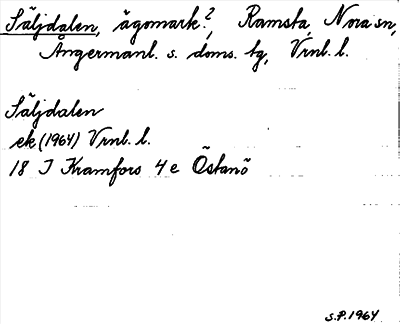 Säljdalen, ägomark?, Ramsta, Nora sn,
Ångermanl. s. doms. tg, Vrnl. l.
Säljdalen
ek (1964) Vrnl. l.
18 I Kramfors 4 e Östanö
S.P. 1964